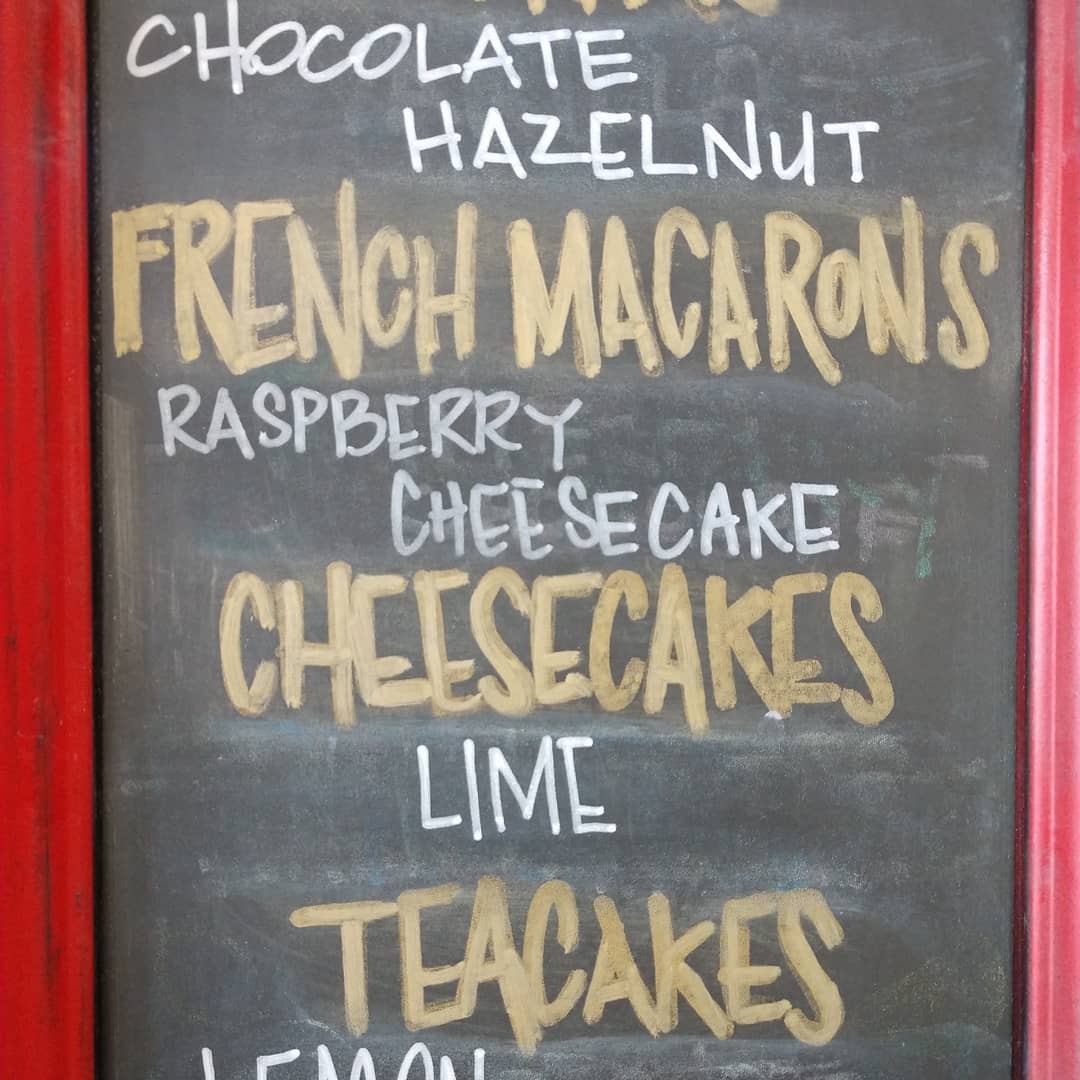 CHOCOLATE
HAZELNUT
FRENCH MACARONS
RASPBERRY
CHEESECAKE
CHEESECAKES
LIME
TEACAKES
LEMON